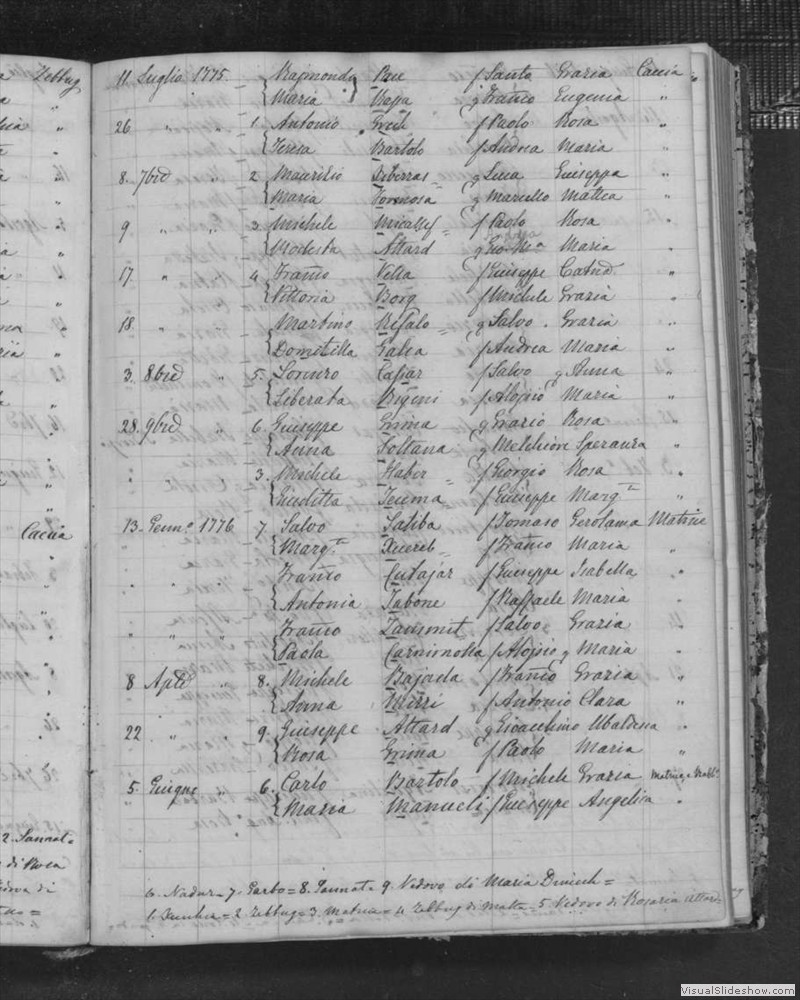 Zebbug 11 Luglio 1775. { Rajmondo Bue f Santo Grazia Caccia "
{ Maria Rapa g Franco Eugenia "
26 " " 1. Antonio Grech f Paolo Rosa "
{ Teresa Bartolo f Andrea Maria "
8. 7bre " 2 Maurilio Xiberras g Luca Giuseppa "
{ Maria Formosa g Marcello Mattea "
9 " " 3. Michele Micallef f Paolo Rosa "
{ Modesta Attard g Gio. Ma Maria "
17 " " 4. Franco Vella f Giuseppe Catna "
{ Vittoria Borg f Michele Grazia "
18. " " Martino Refalo g Salvo. Grazia "
{ Dometilla Galea f Andrea Maria "
3. 8bre " 5. Lorenzo Cassar f Salvo g Anna "
{ Liberata Bigeni f Alojsio Maria "
28. 9bre " 6. Giuseppe Grima g Grazio Rosa "
{ Anna Soltana g Melchiore Speranza "
" " 3. Michele Haber f Giorgio Rosa "
{ Giuditta Tecuma f Giuseppe Margta "
Caccia 13. Genno 1776 7. Salvo Saliba f Tomaso Gerolama Matrice
{ Margta Xuereb f Franco Maria "
" " " Franco Cutajar f Giuseppe Isabella "
{ Antonia Tabone f Raffaele Maria "
" " " Franco Zammit f Salvo Grazia "
{ Paola f Alojsio g Maria "
8 Aple " 8. Michele Bajada f Franco Grazia "
{ Anna Mizzi f Antonio Clara "
22 " " 9. Giuseppe Attard g Gioacchino Ubaldesa "
{ Rosa Grima f Paolo Maria "
5. Giugno " 6. Carlo Bartolo f Michele Grazia
{ Maria Manueli f Giuseppe Angelica "
6. Nadur = 7. Garbo = 8. Sannat = 9. Vedovo di Maria =
1. = 2 Zebbug = 3. Matrice = 4 Zebbug di Malta = 5. Vedovo di Rosaria Attard
VisualSlideshow.com